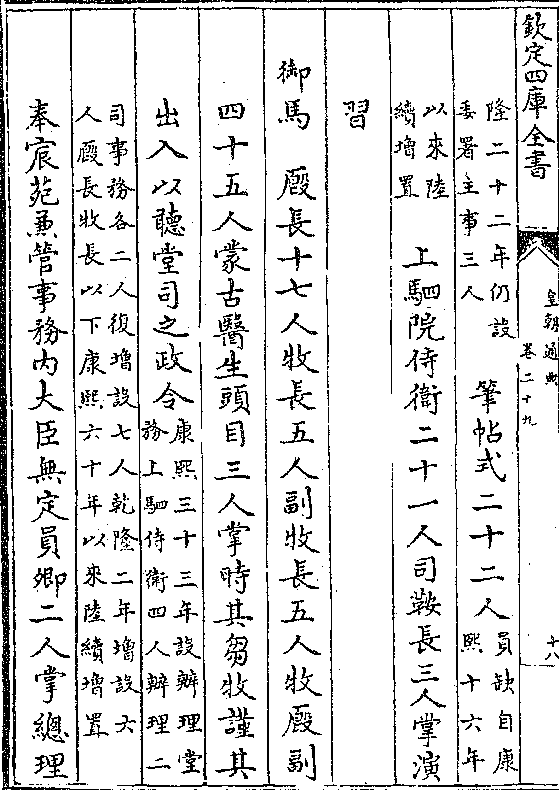 欽定四庫全書
皇朝通典
卷二十九
十八
隆二十二年仍設
委署主事三人
筆帖式二十二人
員缺自康
熙十六年
以來陸
續增置
上駟院侍衛二十一人司鞍長三人掌演
習
御馬 廄長十七人牧長五人副牧長五人牧廄副
四十五人蒙古醫生頭目三人掌時其芻牧謹其
出入以聽堂司之政令
康熙三十三年設辦理堂
務上駟侍衛四人辦理二
司事務各二人復增設七人乾隆二年增設六
人廄長牧長以下康熙六十年以來陸續增置
奉宸苑兼管事務內大臣無定員卿二人掌總理